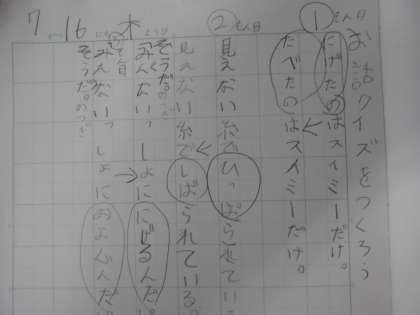 お話クイズをつくろう
①もん目
にげたのはスイミーだけ。
たべたのはスイミーだけ。
②もん目
見えない糸でひっぱられている
見えない糸でしばられている。
みんないっしょににげるんだ。
そうだ。
みんないっしょにおよぐんだ。
そうだ。のつぎ
7 16 木